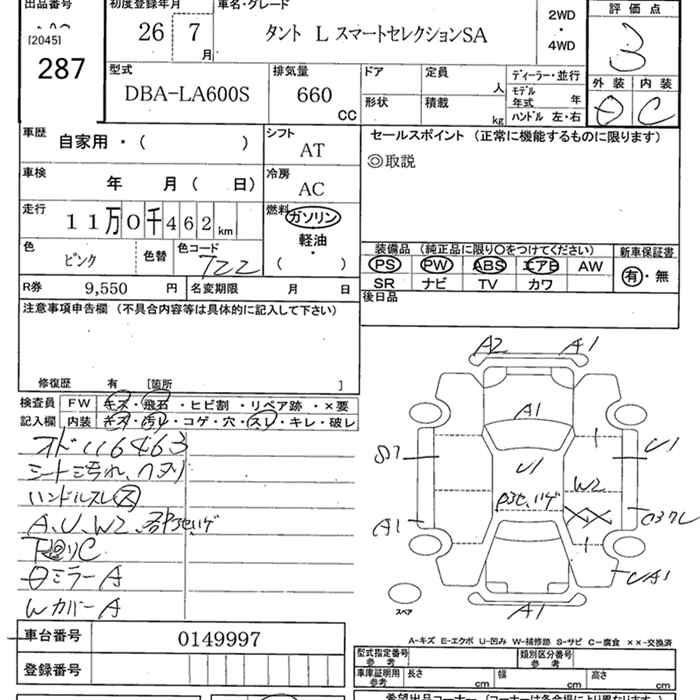 出品番号 初度登録年月 車名・グレード 評価点
[2045]
287
26 7月
タント L スマートセレクションSA
2WD
・
4WD
3
型式 排気量 ドア 定員 人 ディーラー・並行 外装 内装
DBA-LA600S 660 CC
形状 積載 kg モデル年式 年
ハンドル 左・右
C
車歴 自家用・( ) シフト AT
セールスポイント (正常に機能するものに限ります)
◎取説
車検 年 月( 日) 冷房 AC
走行 11万0千462km 燃料 ガソリン
軽油
・
( )
色 ピンク 色替 色コード T22
装備品 (純正品に限り○をつけてください) 新車保証書
PS PW ABS エアB AW 有・無
SR ナビ TV カワ
R券 9,550 円 名変期限 月 日
後日品
注意事項申告欄 (不具合内容等は具体的に記入して下さい)
修復歴 有 [箇所 ]
検査員 FW キズ・飛石・ヒビ割・リペア跡・×要
記入欄 内装 キズ・汚レ・コゲ・穴・スレ・キレ・破レ
オド116463
シート汚れ、ヘタリ
ハンドルスレ ス
A、U、W2、
下回りC
ミラーA
WカバーA
A2 A1
A1
U1
U1
W2
A1
UA1
A1
スペア
A-キズ E-エクボ U-凹み W-補修跡 S-サビ C-腐食 ××-交換済
車台番号 0149997
登録番号
型式指定番号 参考 類別区分番号 参考
車庫証明用 参考 長さ cm 幅 cm 高さ cm
希望出品コーナー